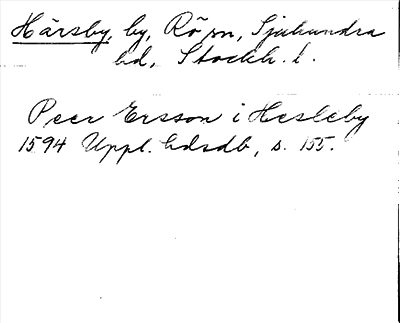 Härsby, by, Rö sn, Sjuhundra
hd, Stockh. l.
Peer Ersson i Hesleby
1594 Uppl. hdsdb, s. 155.